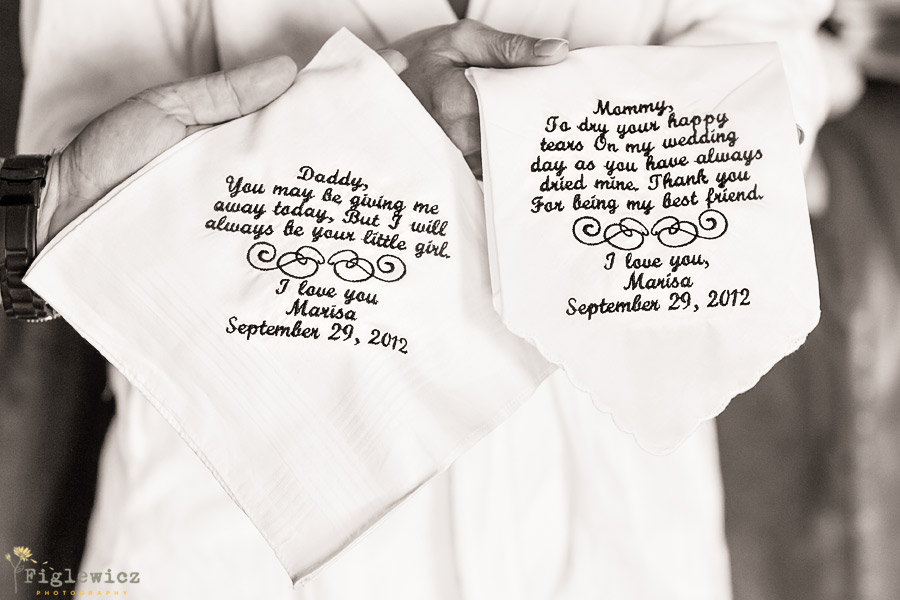 Daddy,
You may be giving me
away today, But I will
always be your little girl.
I love you
Marisa
September 29, 2012
Mommy,
To dry your happy
tears On my wedding
day as you have always
dried mine. Thank you
For being my best friend.
I love you,
Marisa
September 29, 2012
Figlewicz
PHOTOGRAPHY